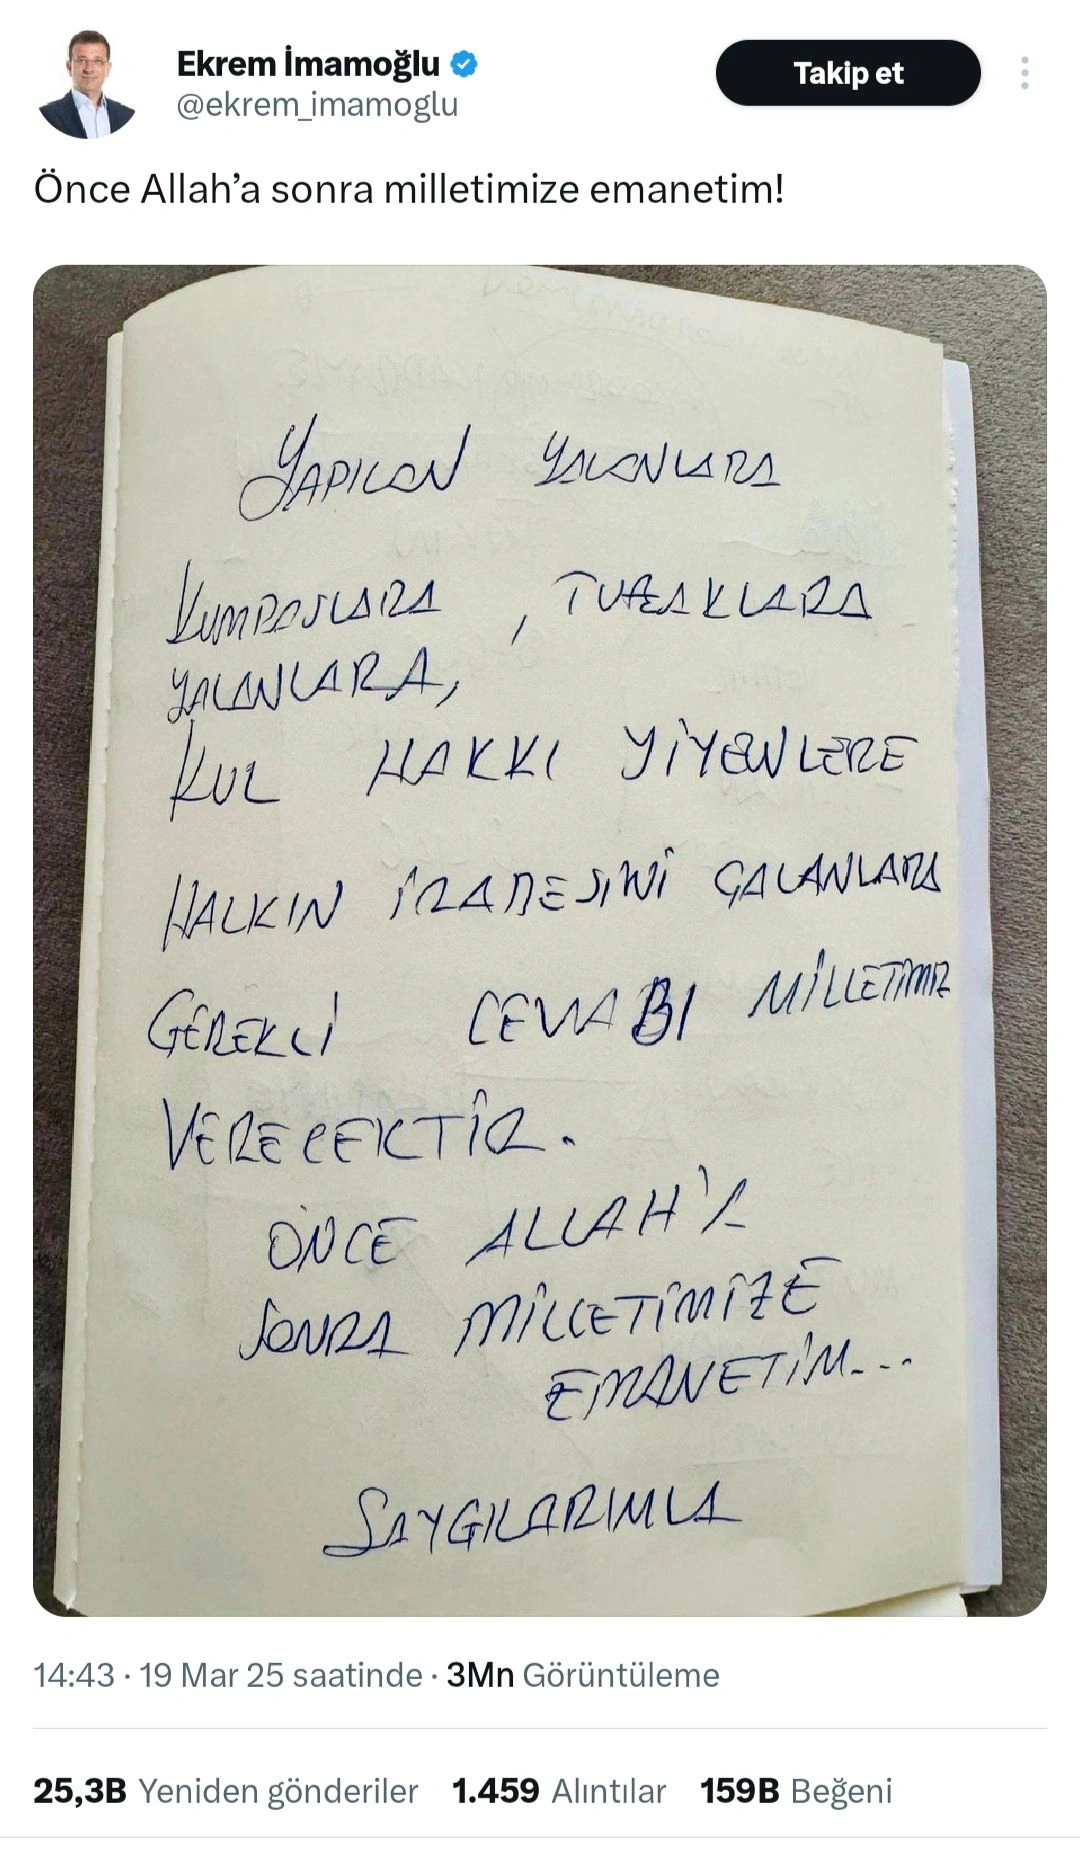 Ekrem İmamoğlu
Takip et
@ekrem_imamoglu
Önce Allah'a sonra milletimize emanetim!
YAPILAN YALANLARA
KUMPASLARA , TUZAKLARA
YALANLARA,
KUL HAKKI YİYENLERE
HALKIN İRADESİNİ ÇALANLARA
GEREKLİ CEVABI MİLLETİMİZ
VERECEKTİR.
ÖNCE ALLAH'A
SONRA MİLLETİMİZE
EMANETİM...
SAYGILARIMLA
14:43 · 19 Mar 25 saatinde · 3Mn Görüntüleme
25,3B Yeniden gönderiler 1.459 Alıntılar 159B Beğeni